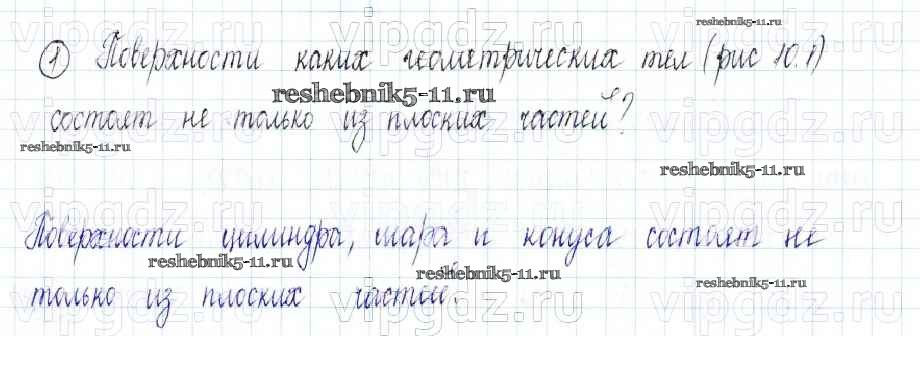 reshebnik5-11.ru
① Поверхности каких геометрических тел (рис 10.1)
reshebnik5-11.ru
состоят не только из плоских частей?
reshebnik5-11.ru
reshebnik5-11.ru
Поверхности цилиндра, шара и конуса состоят не
reshebnik5-11.ru
reshebnik5-11.ru
reshebnik5-11.ru
только из плоских частей.
vipgdz.ru